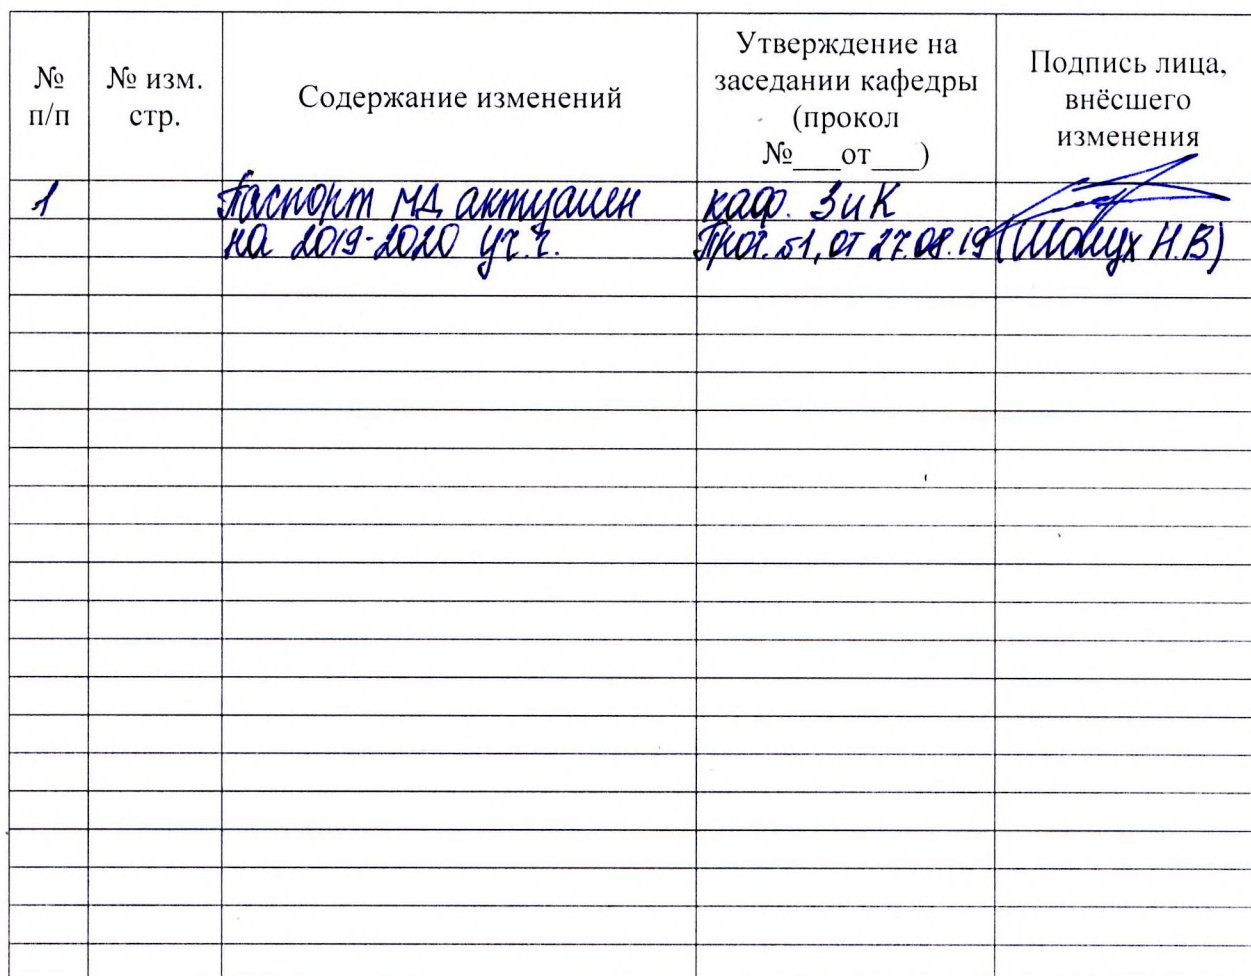 № п/п
№ изм. стр.
Содержание изменений
Утверждение на
заседании кафедры
(прокол
№___от___)
Подпись лица,
внёсшего
изменения
1
Паспорт МД актуален
на 2019-2020 уч.г.
каф. ЗиК
Прот. №1, от 27.08.19
Н.В)